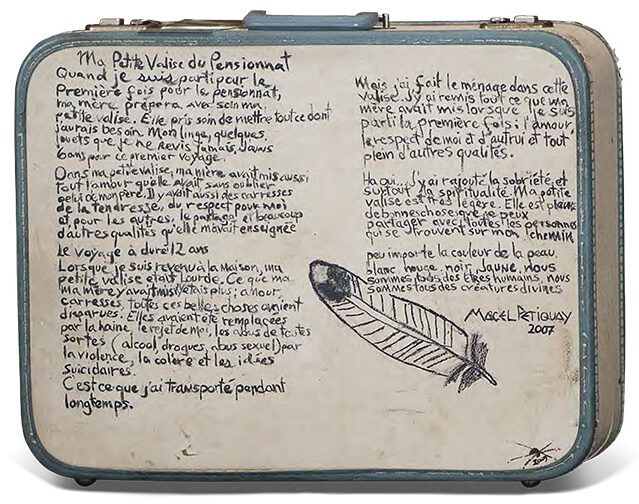 Ma Petite Valise du Pensionnat
Quand je suis parti pour la
Première fois pour le pensionnat,
ma mère prépara avec soin ma
petite valise. Elle pris soin de mettre tout ce dont
j'aurais besoin. Mon linge, quelques
jouets que je ne revis jamais, j'avais
6 ans pour ce premier voyage.
Dans ma petite valise, ma mère avait mis aussi
tout l'amour qu'elle avait sans oublier
celui de mon père. Il y avait aussi des caresses
de la tendresse, du respect pour moi
et pour les autres, le partage et beaucoup
d'autres qualités qu'elle m'avait enseignée
Le voyage à duré 12 ans
Lorsque je suis revenu à la maison, ma
petite valise était lourde. Ce que ma
ma mère y avait mis n'était plus; amour,
carresses, toutes ces belles choses avaient
disparues. Elles avaient été remplacées
par la haine, le rejet de moi, les abus de toutes
sortes (alcool, drogues, abus sexuel) par
la violence, la colère et les idées
suicidaires.
C'est ce que j'ai transporté pendant
longtemps.
Mais j'ai fait le ménage dans cette
valise. J'y ai remis tout ce que ma
mère avait mis lorsque je suis
parti la première fois: l'amour,
le respect de moi et d'autrui et tout
plein d'autres qualités.
J'y ai rajouté la sobriété, et
surtout la spiritualité. Ma petite
valise est très légère. Elle est pleine
de bonnes choses que je peux
partager avec toutes les personnes
qui se trouvent sur mon chemin
peu importe la couleur de la peau.
blanc rouge noir jaune. Nous
sommes tous des êtres humains, nous
sommes tous des créatures divines
Macel Petiquay
2007